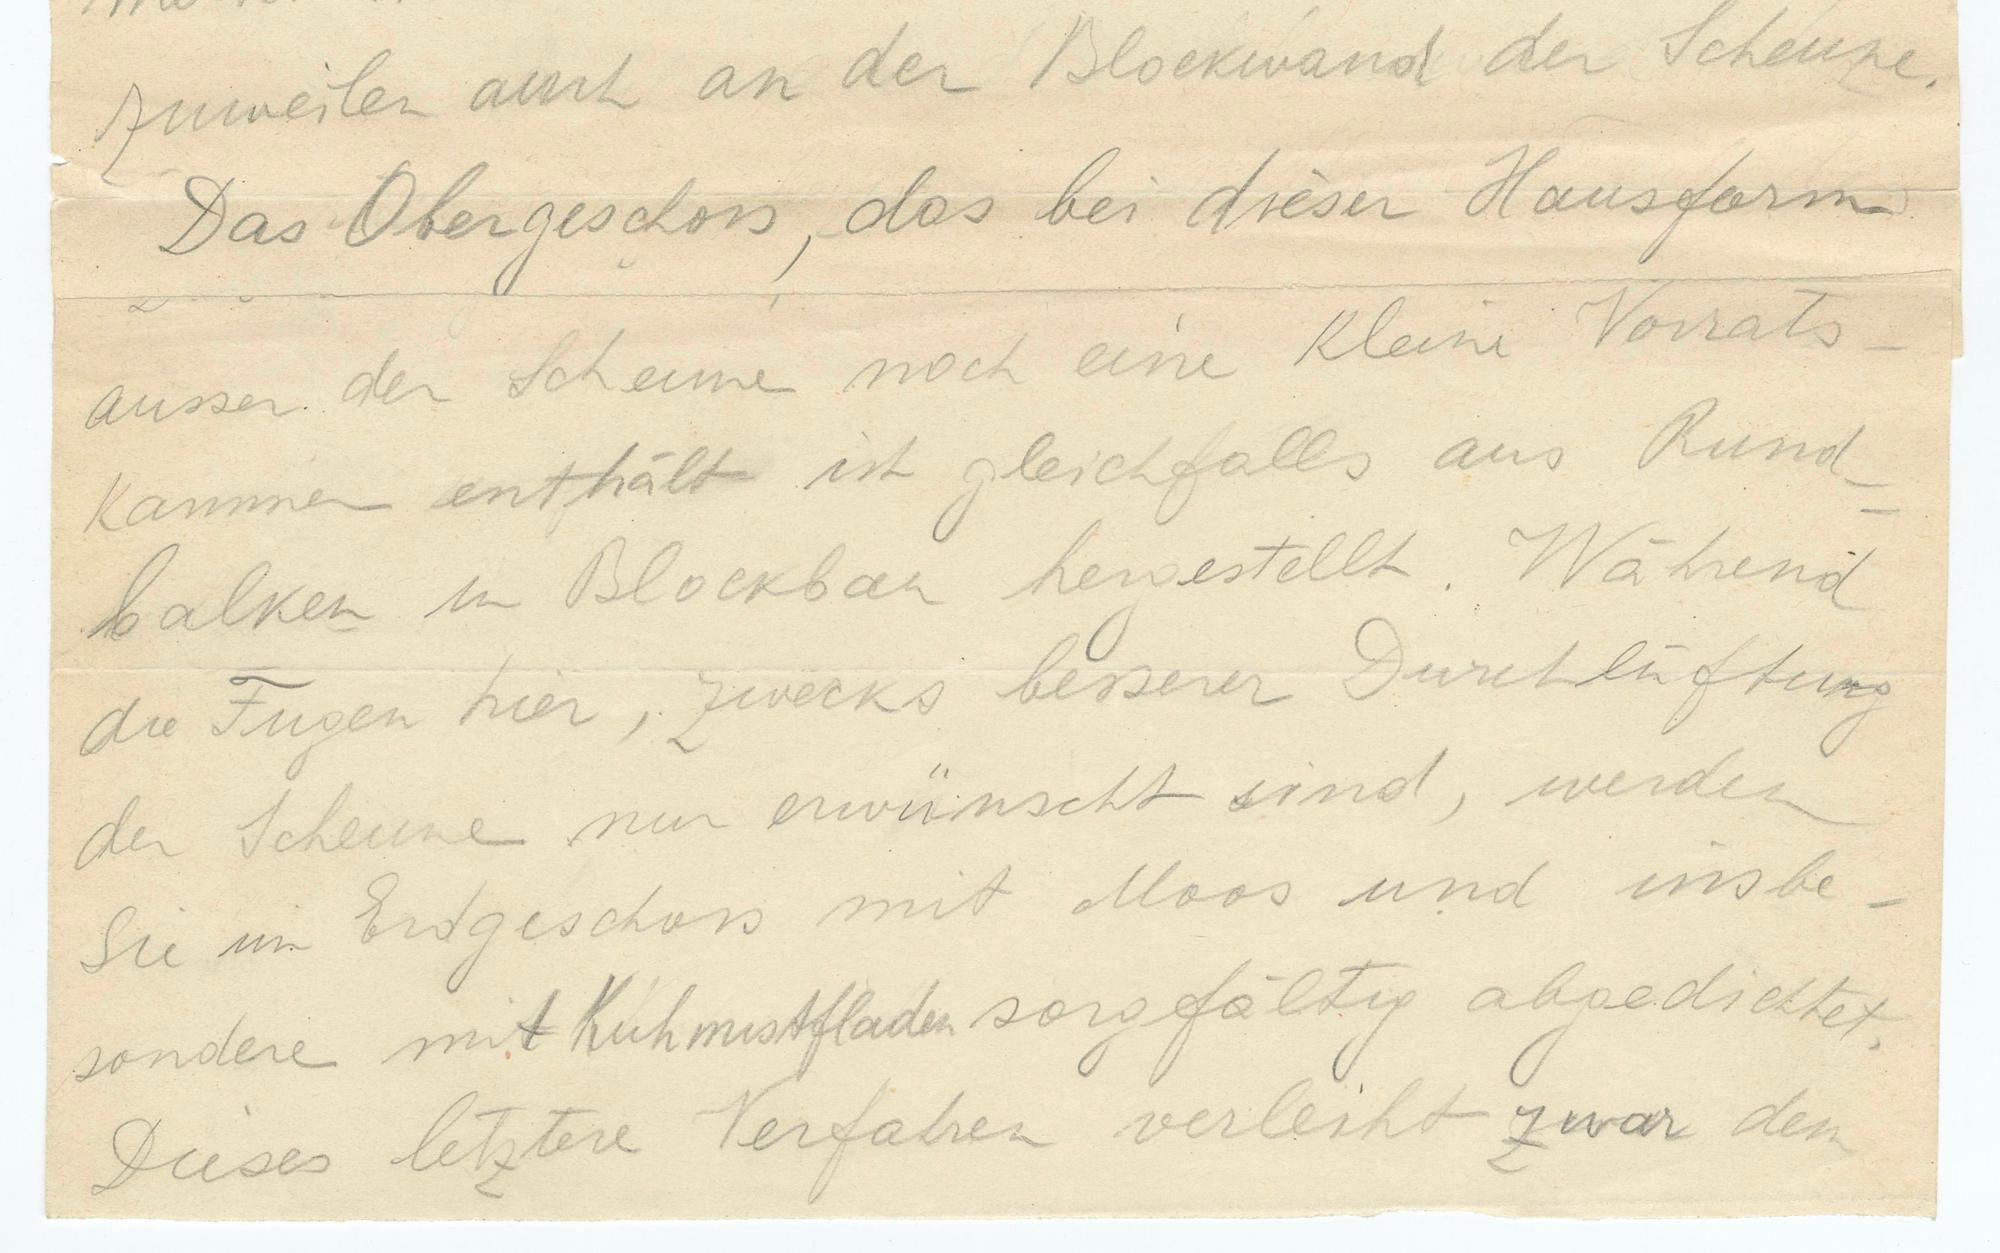 zuweilen auch an der Blockwand der Scheune.
Das Obergeschoss, das bei dieser Hausform
ausser der Scheune noch eine kleine Vorrats-
kammer enthält ist gleichfalls aus Rund-
balken in Blockbau hergestellt. Während
die Fugen hier, zwecks besserer Durchlüftung
der Scheune nur erwünscht sind, werden
sie im Erdgeschoss mit Moos und insbe-
sondere mit Kuhmistfladen sorgfältig abgedichtet.
Dieses letztere Verfahren verleiht zwar dem